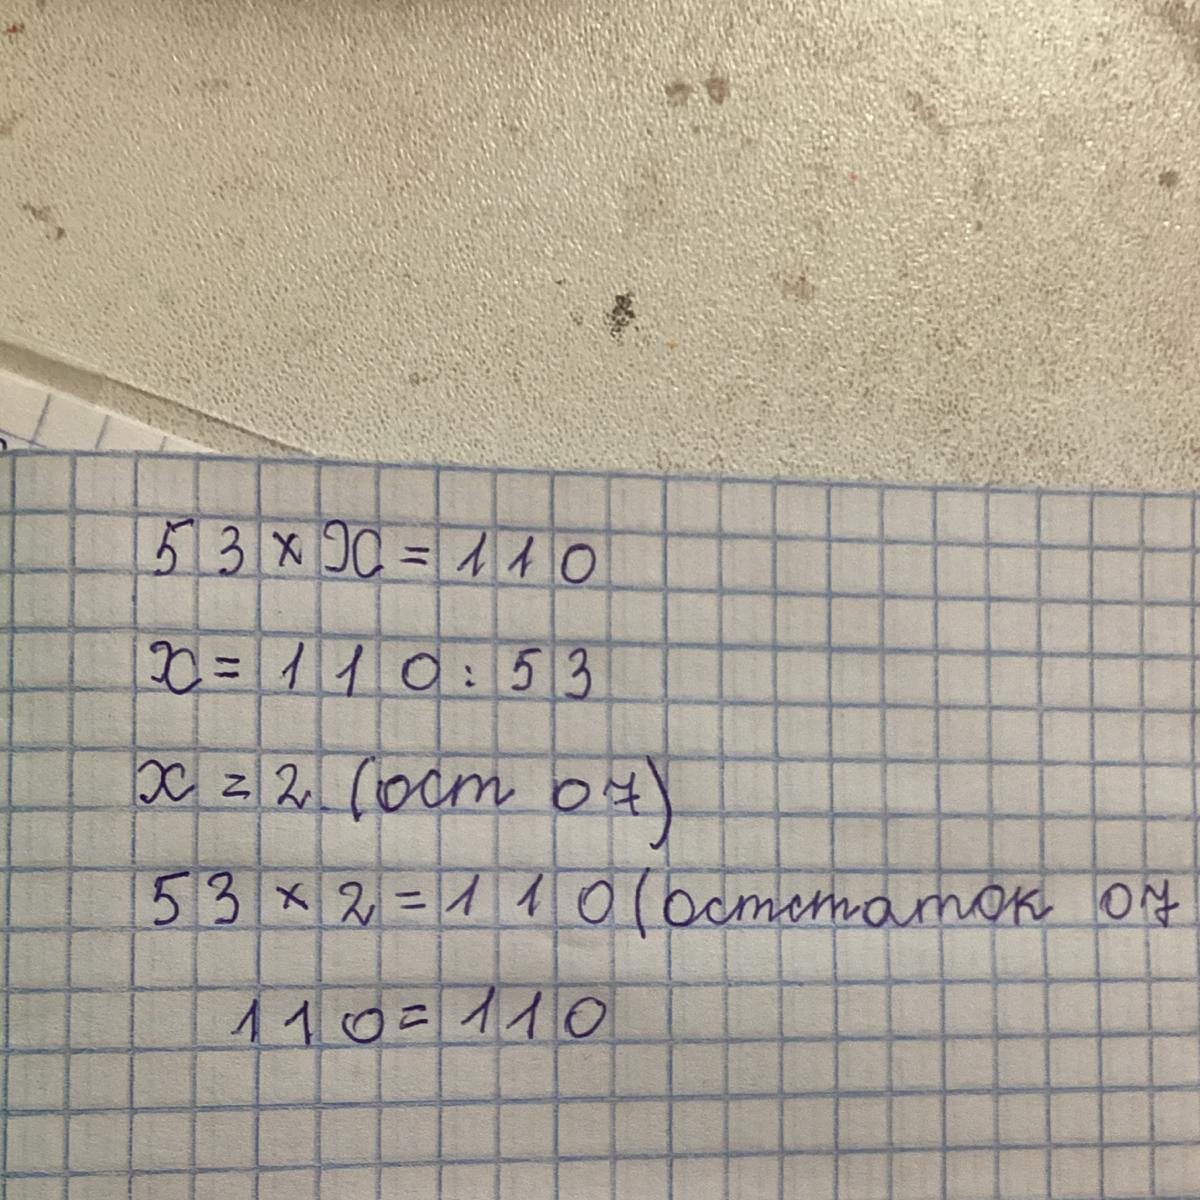 53×х=110
х=110:53
х=2 (ост 07)
53×2=110(остстаток 07
110=110